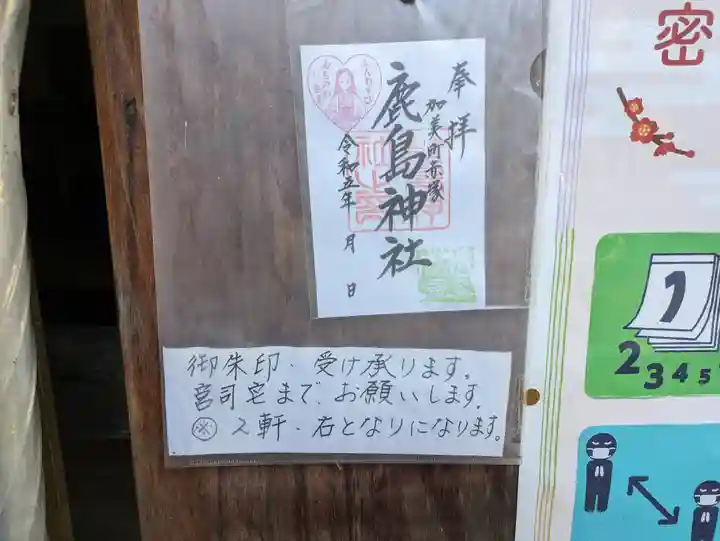 奉拝
加美町赤塚
鹿島神社
令和五年 月 日
御朱印・受け承ります。
宮司宅まで、お願いします。
※ 2軒・右となりになります。
密
1
2 3 4 5